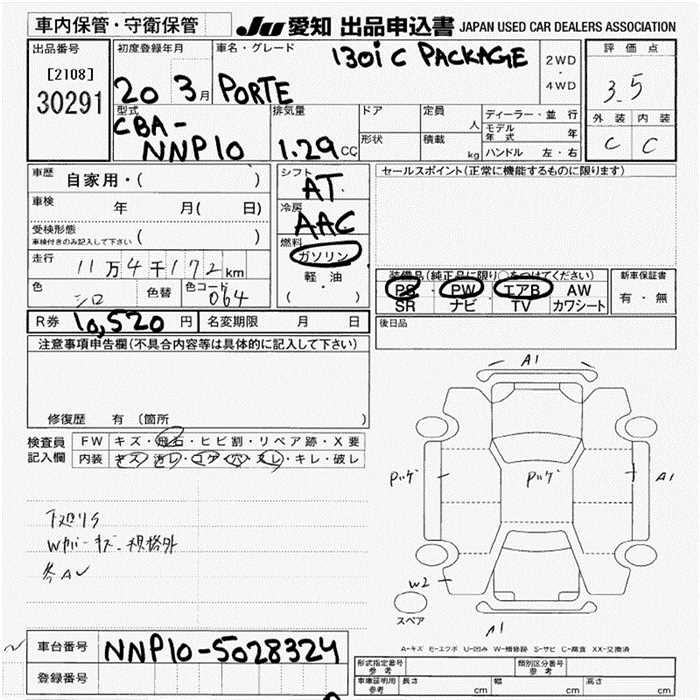 車内保管・守衛保管
JU 愛知 出品申込書 JAPAN USED CAR DEALERS ASSOCIATION
出品番号
[2108]
30291
初度登録年月
20 3月
車名・グレード
130i C PACKAGE
PORTE
2WD
・
4WD
評価点
3.5
外装 内装
C C
型式
CBA-
NNP10
排気量
1.29 CC
ドア
形状
定員
人
積載
kg
ディーラー・並行
モデル年式 年
ハンドル 左・右
車歴 自家用・( )
車検 年 月( 日)
受検形態
車検付きのみ記入して下さい ( )
走行 11万4千172km
色 シロ 色替 色コード 064
シフト
AT
冷房
AAC
燃料
ガソリン
軽・油
( )
セールスポイント(正常に機能するものに限ります)
装備品(純正品に限り○をつけてください)
PS・PW・エアB AW
SR ナビ TV カワシート
新車保証書
有・無
R券 10,520 円 名変期限 月 日
後日品
注意事項申告欄(不具合内容等は具体的に記入して下さい)
修復歴 有 (箇所 )
検査員
記入欄
FW キズ・飛石・ヒビ割・リペア跡・X要
内装 キズ・汚レ・コゲ・穴・スレ・キレ・破レ
下廻りS
Wカバーキズ・規格外
A1
Pハゲ
Pハゲ
A1
W2
スペア
A1
A-キズ E-エクボ U-凹み W-補修跡 S-サビ C-腐食 XX-交換済
車台番号 NNP10-5028324
登録番号
形式指定番号
参考
類別区分番号
車庫証明用
参考
長さ cm 幅 cm 高さ cm